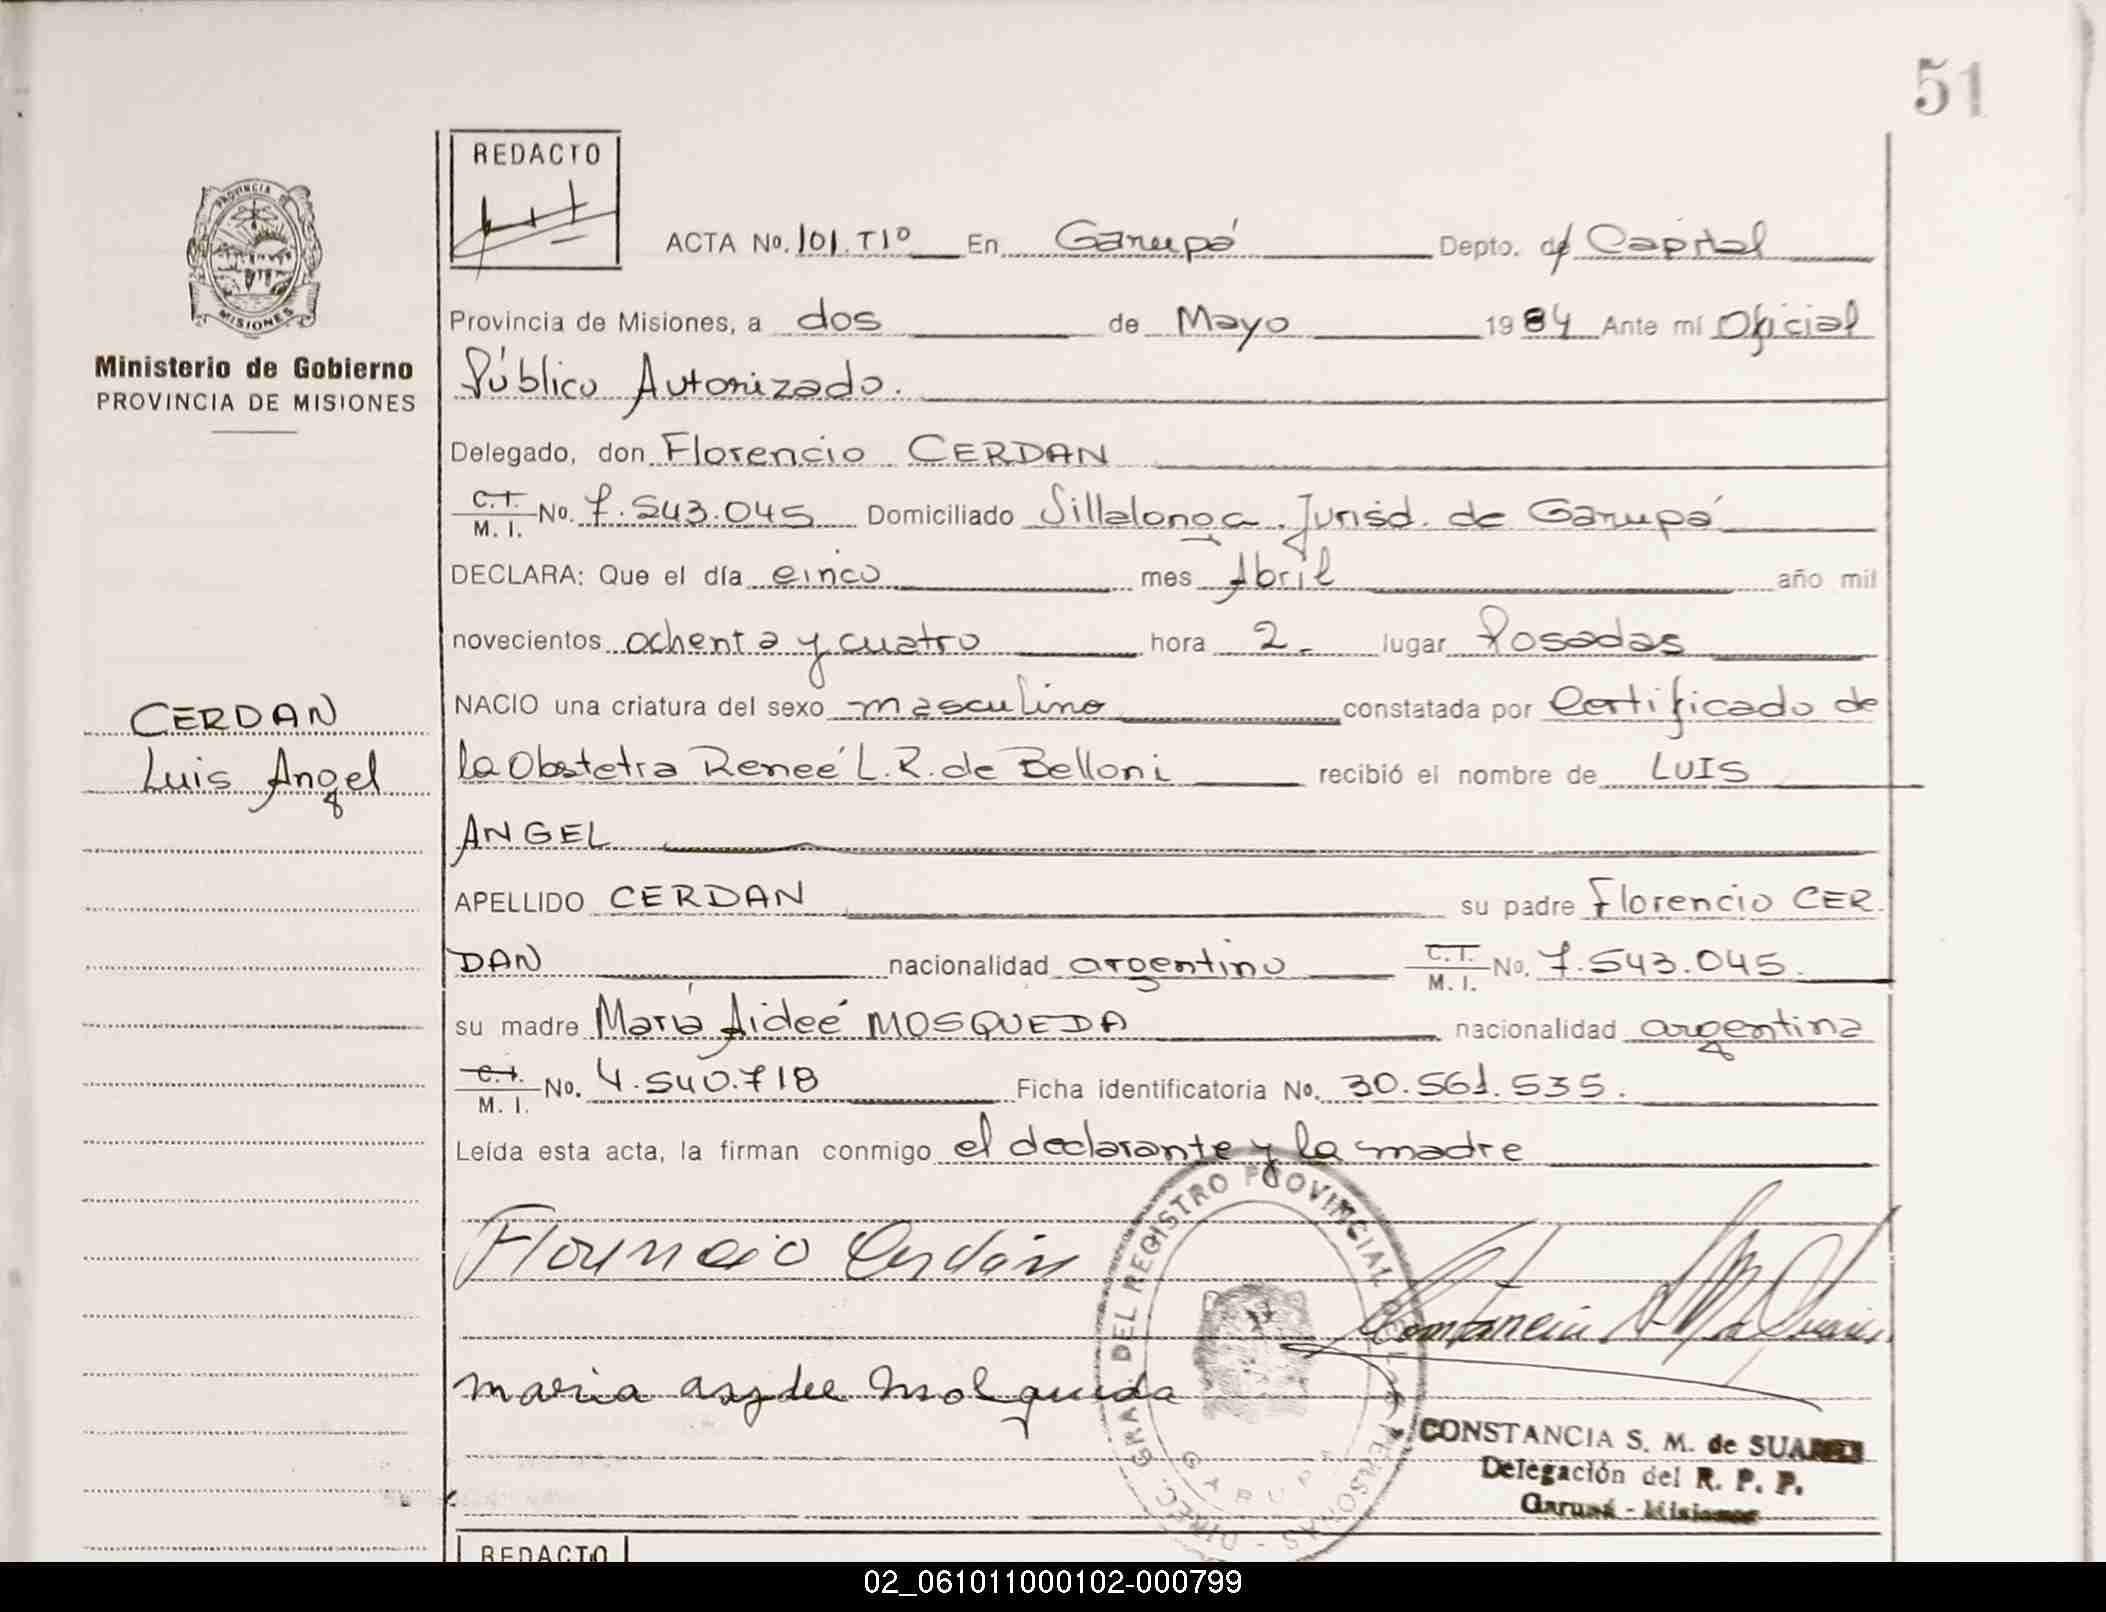 51
REDACTO
ACTA No. 101.T1º En Garupá Depto. de Capital
PROVINCIA DE
MISIONES
Provincia de Misiones, a dos de Mayo 1984 Ante mí Oficial
Ministerio de Gobierno
PROVINCIA DE MISIONES
Público Autorizado.
Delegado, don Florencio CERDAN
C.I. M. I. No. 7.543.045 Domiciliado Villalonga. Jurisd. de Garupá
DECLARA: Que el día cinco mes Abril año mil
novecientos ochenta y cuatro hora 2. lugar Posadas
CERDAN
Luis Angel
NACIO una criatura del sexo masculino constatada por Certificado de
la Obstetra Reneé L.R. de Belloni recibió el nombre de LUIS
ANGEL
APELLIDO CERDAN su padre Florencio CER
DAN nacionalidad argentino C.I. M. I. No. 7.543.045.
su madre María Aideé MOSQUEDA nacionalidad argentina
C.I. M. I. No. 4.540.718 Ficha identificatoria No. 30.561.535.
Leída esta acta, la firman conmigo el declarante y la madre
Florencio Cerdán
maria aydee Mosqueda
DIREC. GRAL. DEL REGISTRO PROVINCIAL DE LAS PERSONAS -
GARUPA
CONSTANCIA S. M. de SUAREZ
Delegación del R. P. P.
Garupá - Misiones
REDACTO
02_061011000102-000799